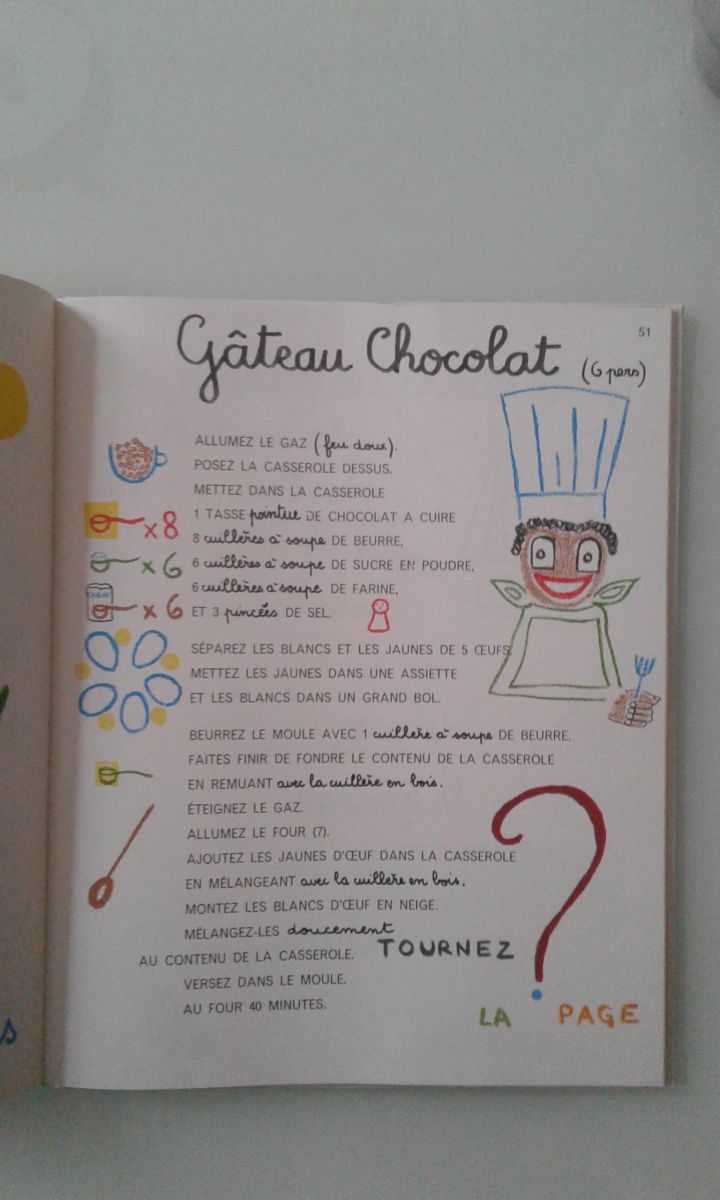 51
Gâteau Chocolat (6 pers)
ALLUMEZ LE GAZ (feu doux).
POSEZ LA CASSEROLE DESSUS.
METTEZ DANS LA CASSEROLE
1 TASSE pointue DE CHOCOLAT A CUIRE
x 8 8 cuillères à soupe DE BEURRE,
x 6 6 cuillères à soupe DE SUCRE EN POUDRE,
6 cuillères à soupe DE FARINE,
x 6 ET 3 pincées DE SEL.
SÉPAREZ LES BLANCS ET LES JAUNES DE 5 ŒUFS.
METTEZ LES JAUNES DANS UNE ASSIETTE
ET LES BLANCS DANS UN GRAND BOL.
BEURREZ LE MOULE AVEC 1 cuillère à soupe DE BEURRE.
FAITES FINIR DE FONDRE LE CONTENU DE LA CASSEROLE
EN REMUANT avec la cuillère en bois.
ÉTEIGNEZ LE GAZ.
ALLUMEZ LE FOUR (7).
AJOUTEZ LES JAUNES D'ŒUF DANS LA CASSEROLE
EN MÉLANGEANT avec la cuillère en bois.
MONTEZ LES BLANCS D'ŒUF EN NEIGE.
MÉLANGEZ-LES doucement
AU CONTENU DE LA CASSEROLE.
VERSEZ DANS LE MOULE.
AU FOUR 40 MINUTES.
TOURNEZ
LA PAGE
?
s